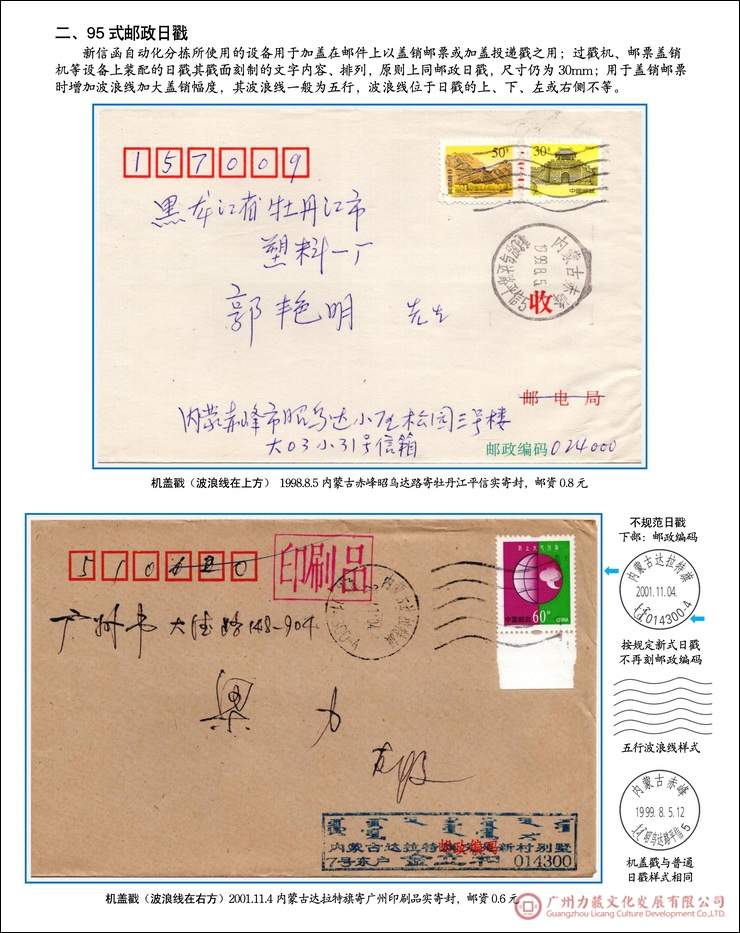 二、95 式邮政日戳
新信函自动化分拣所使用的设备用于加盖在邮件上以盖销邮票或加盖投递戳之用；过戳机、邮票盖销
机等设备上装配的日戳其戳面刻制的文字内容、排列，原则上同邮政日戳，尺寸仍为 30mm；用于盖销邮票
时增加波浪线加大盖销幅度，其波浪线一般为五行，波浪线位于日戳的上、下、左或右侧不等。
157009
50分
30分
中国邮政
黑龙江省牡丹江市
塑料一厂
郭艳明 先生
内蒙古赤峰
收
邮电局
内蒙赤峰市昭乌达小区松园三号楼
大03小31号信箱
邮政编码 024000
机盖戳（波浪线在上方） 1998.8.5 内蒙古赤峰昭乌达路寄牡丹江平信实寄封，邮资 0.8 元
印刷品
中国邮政 60分 CHINA
广州市大德路148-904
梁力
邮政编码
内蒙古达拉特旗 新村别墅
7号东户 金立和 014300
机盖戳（波浪线在右方）2001.11.4 内蒙古达拉特旗寄广州印刷品实寄封，邮资 0.6 元
不规范日戳
下部：邮政编码
内蒙古达拉特旗
2001.11.04.
014300-4
按规定新式日戳
不再刻邮政编码
五行波浪线样式
内蒙古赤峰
1999.8.5.12
昭乌达路平信5
机盖戳与普通
日戳样式相同
广州力藏文化发展有限公司
Guangzhou Licang Culture Development Co.,LTD.